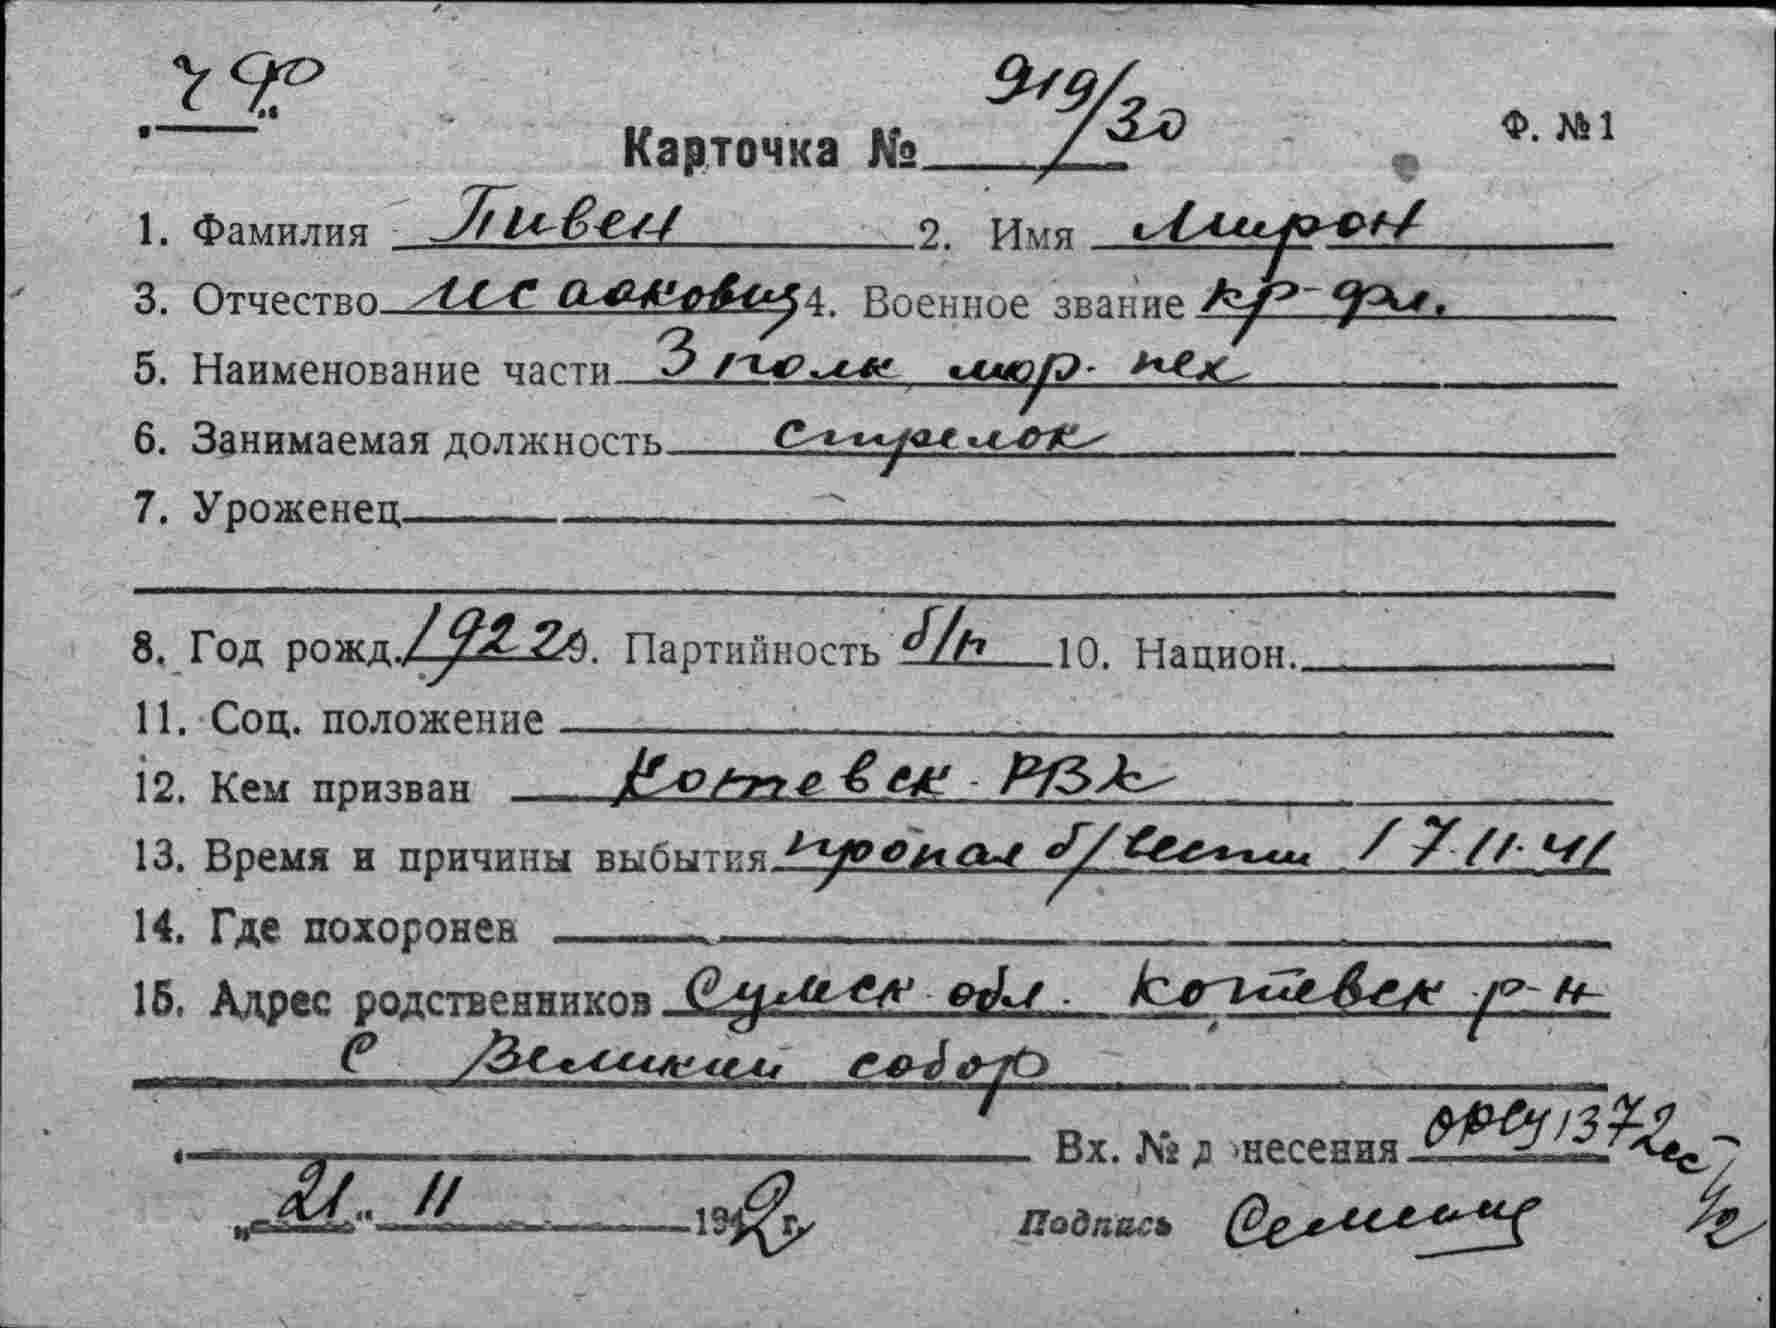 ЧФ
919/30
Карточка № Ф. №1
1. Фамилия Пивен 2. Имя Мирон
3. Отчество Исаакович 4. Военное звание кр-фл.
5. Наименование части 3 полк мор. пех
6. Занимаемая должность стрелок
7. Уроженец
8. Год рожд. 1922 9. Партийность б/п 10. Национ.
11. Соц. положение
12. Кем призван Котевск РВК
13. Время и причины выбытия пропал б/вести 17.11.41
14. Где похоронен
15. Адрес родственников Сумск обл. Котевск р-н
с Великий собор
Вх. № донесения 1372сс
„21" 11 1942 г. Подпись